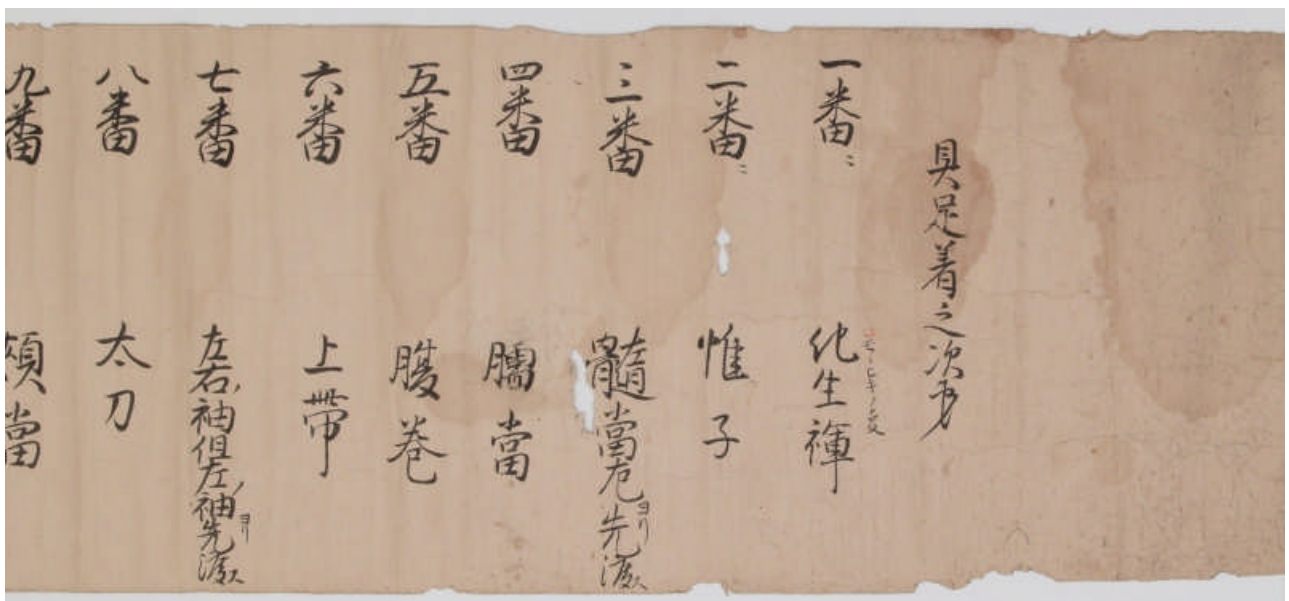 具足着之次第
一番ニ 化生褌
二番ニ 帷子
三番 髓當左ヨリ先
四番 臑當
五番 腹巻
六番 上帯
七番 左右ノ袖但左ノ袖ヨリ先
八番 太刀
九番 頬當